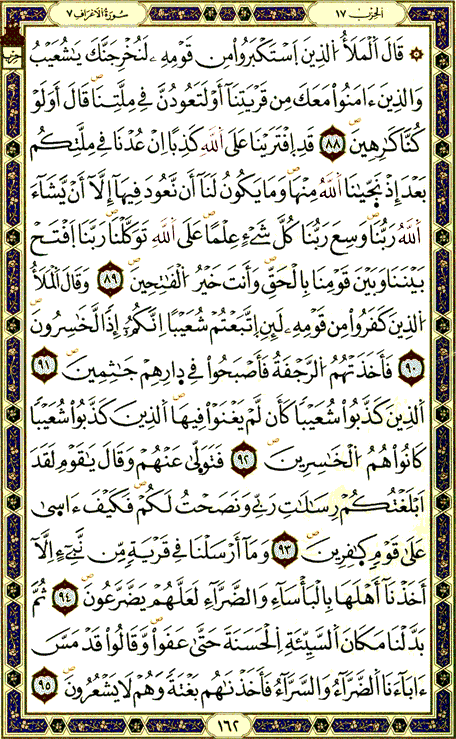 الحزب ١٧
سورة الأعراف ٧
۞ قَالَ ٱلْمَلَأُ ٱلَّذِينَ ٱسْتَكْبَرُوا۟ مِن قَوْمِهِۦ لَنُخْرِجَنَّكَ يَٰشُعَيْبُ
وَٱلَّذِينَ ءَامَنُوا۟ مَعَكَ مِن قَرْيَتِنَآ أَوْ لَتَعُودُنَّ فِى مِلَّتِنَا قَالَ أَوَلَوْ
كُنَّا كَٰرِهِينَ ٨٨ قَدِ ٱفْتَرَيْنَا عَلَى ٱللَّهِ كَذِبًا إِنْ عُدْنَا فِى مِلَّتِكُم
بَعْدَ إِذْ نَجَّيٰنَا ٱللَّهُ مِنْهَا وَمَا يَكُونُ لَنَآ أَن نَّعُودَ فِيهَآ إِلَّآ أَنْ يَّشَآءَ
ٱللَّهُ رَبُّنَا وَسِعَ رَبُّنَا كُلَّ شَىْءٍ عِلْمًا عَلَى ٱللَّهِ تَوَكَّلْنَا رَبَّنَا ٱفْتَحْ
بَيْنَنَا وَبَيْنَ قَوْمِنَا بِٱلْحَقِّ وَأَنتَ خَيْرُ ٱلْفَٰتِحِينَ ٨٩ وَقَالَ ٱلْمَلَأُ
ٱلَّذِينَ كَفَرُوا۟ مِن قَوْمِهِۦ لَئِنِ ٱتَّبَعْتُمْ شُعَيْبًا اِنَّكُمُۥٓ إِذًا لَّخَٰسِرُونَ
٩٠ فَأَخَذَتْهُمُ ٱلرَّجْفَةُ فَأَصْبَحُوا۟ فِى دِارِهِمْ جَٰثِمِينَ ٩١
ٱلَّذِينَ كَذَّبُوا۟ شُعَيْبًا كَأَن لَّمْ يَغْنَوْا۟ فِيهَا ٱلَّذِينَ كَذَّبُوا۟ شُعَيْبًا
كَانُوا۟ هُمُ ٱلْخَٰسِرِينَ ٩٢ فَتَوَلّٰى عَنْهُمْ وَقَالَ يَٰقَوْمِ لَقَدَ
اَبْلَغْتُكُمْ رِسَٰلَٰتِ رَبِّى وَنَصَحْتُ لَكُمْ فَكَيْفَ ءَاسٰى
عَلَىٰ قَوْمٍ كٰفِرِينَ ٩٣ وَمَآ أَرْسَلْنَا فِى قَرْيَةٍ مِّن نَّبِىٓءٍ اِلَّآ
أَخَذْنَآ أَهْلَهَا بِٱلْبَأْسَآءِ وَٱلضَّرَّآءِ لَعَلَّهُمْ يَضَّرَّعُونَ ٩٤ ثُمَّ
بَدَّلْنَا مَكَانَ ٱلسَّيِّئَةِ ٱلْحَسَنَةَ حَتَّىٰ عَفَوا۟ وَّقَالُوا۟ قَدْ مَسَّ
ءَابَآءَنَا ٱلضَّرَّآءُ وَٱلسَّرَّآءُ فَأَخَذْنَٰهُم بَغْتَةً وَهُمْ لَا يَشْعُرُونَ ٩٥
١٦٢